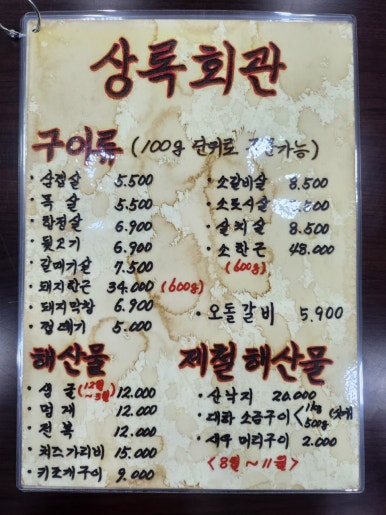 상록회관
구이류 (100g 단위로 주문가능)
· 삼겹살 5.500
· 목살 5.500
· 항정살 6.900
· 뒷고기 6.900
· 갈매기살 7.500
· 돼지한근 34.000 (600g)
· 돼지막창 6.900
· 껍데기 5.000
· 소갈비살 8.500
· 소토시살 8.500
· 살치살 8.500
· 소한근 48.000
(600g)
· 오돌갈비 5.900
해산물
· 생굴 (12월~3월) 12.000
· 멍게 12.000
· 전복 12.000
· 치즈가리비 15.000
· 키조개구이 9.000
제철 해산물
· 산낙지 20.000
· 대하 소금구이 < 1kg 500g
· 새우 머리구이 2.000
<8월~11월>